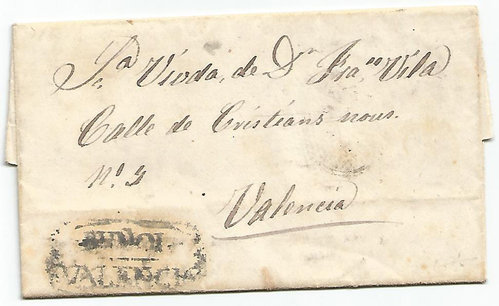 S.ª Viuda, de D.n Fra.co Vila
Calle de Cristians nous.
N.º 9
Valencia
VALENCIA